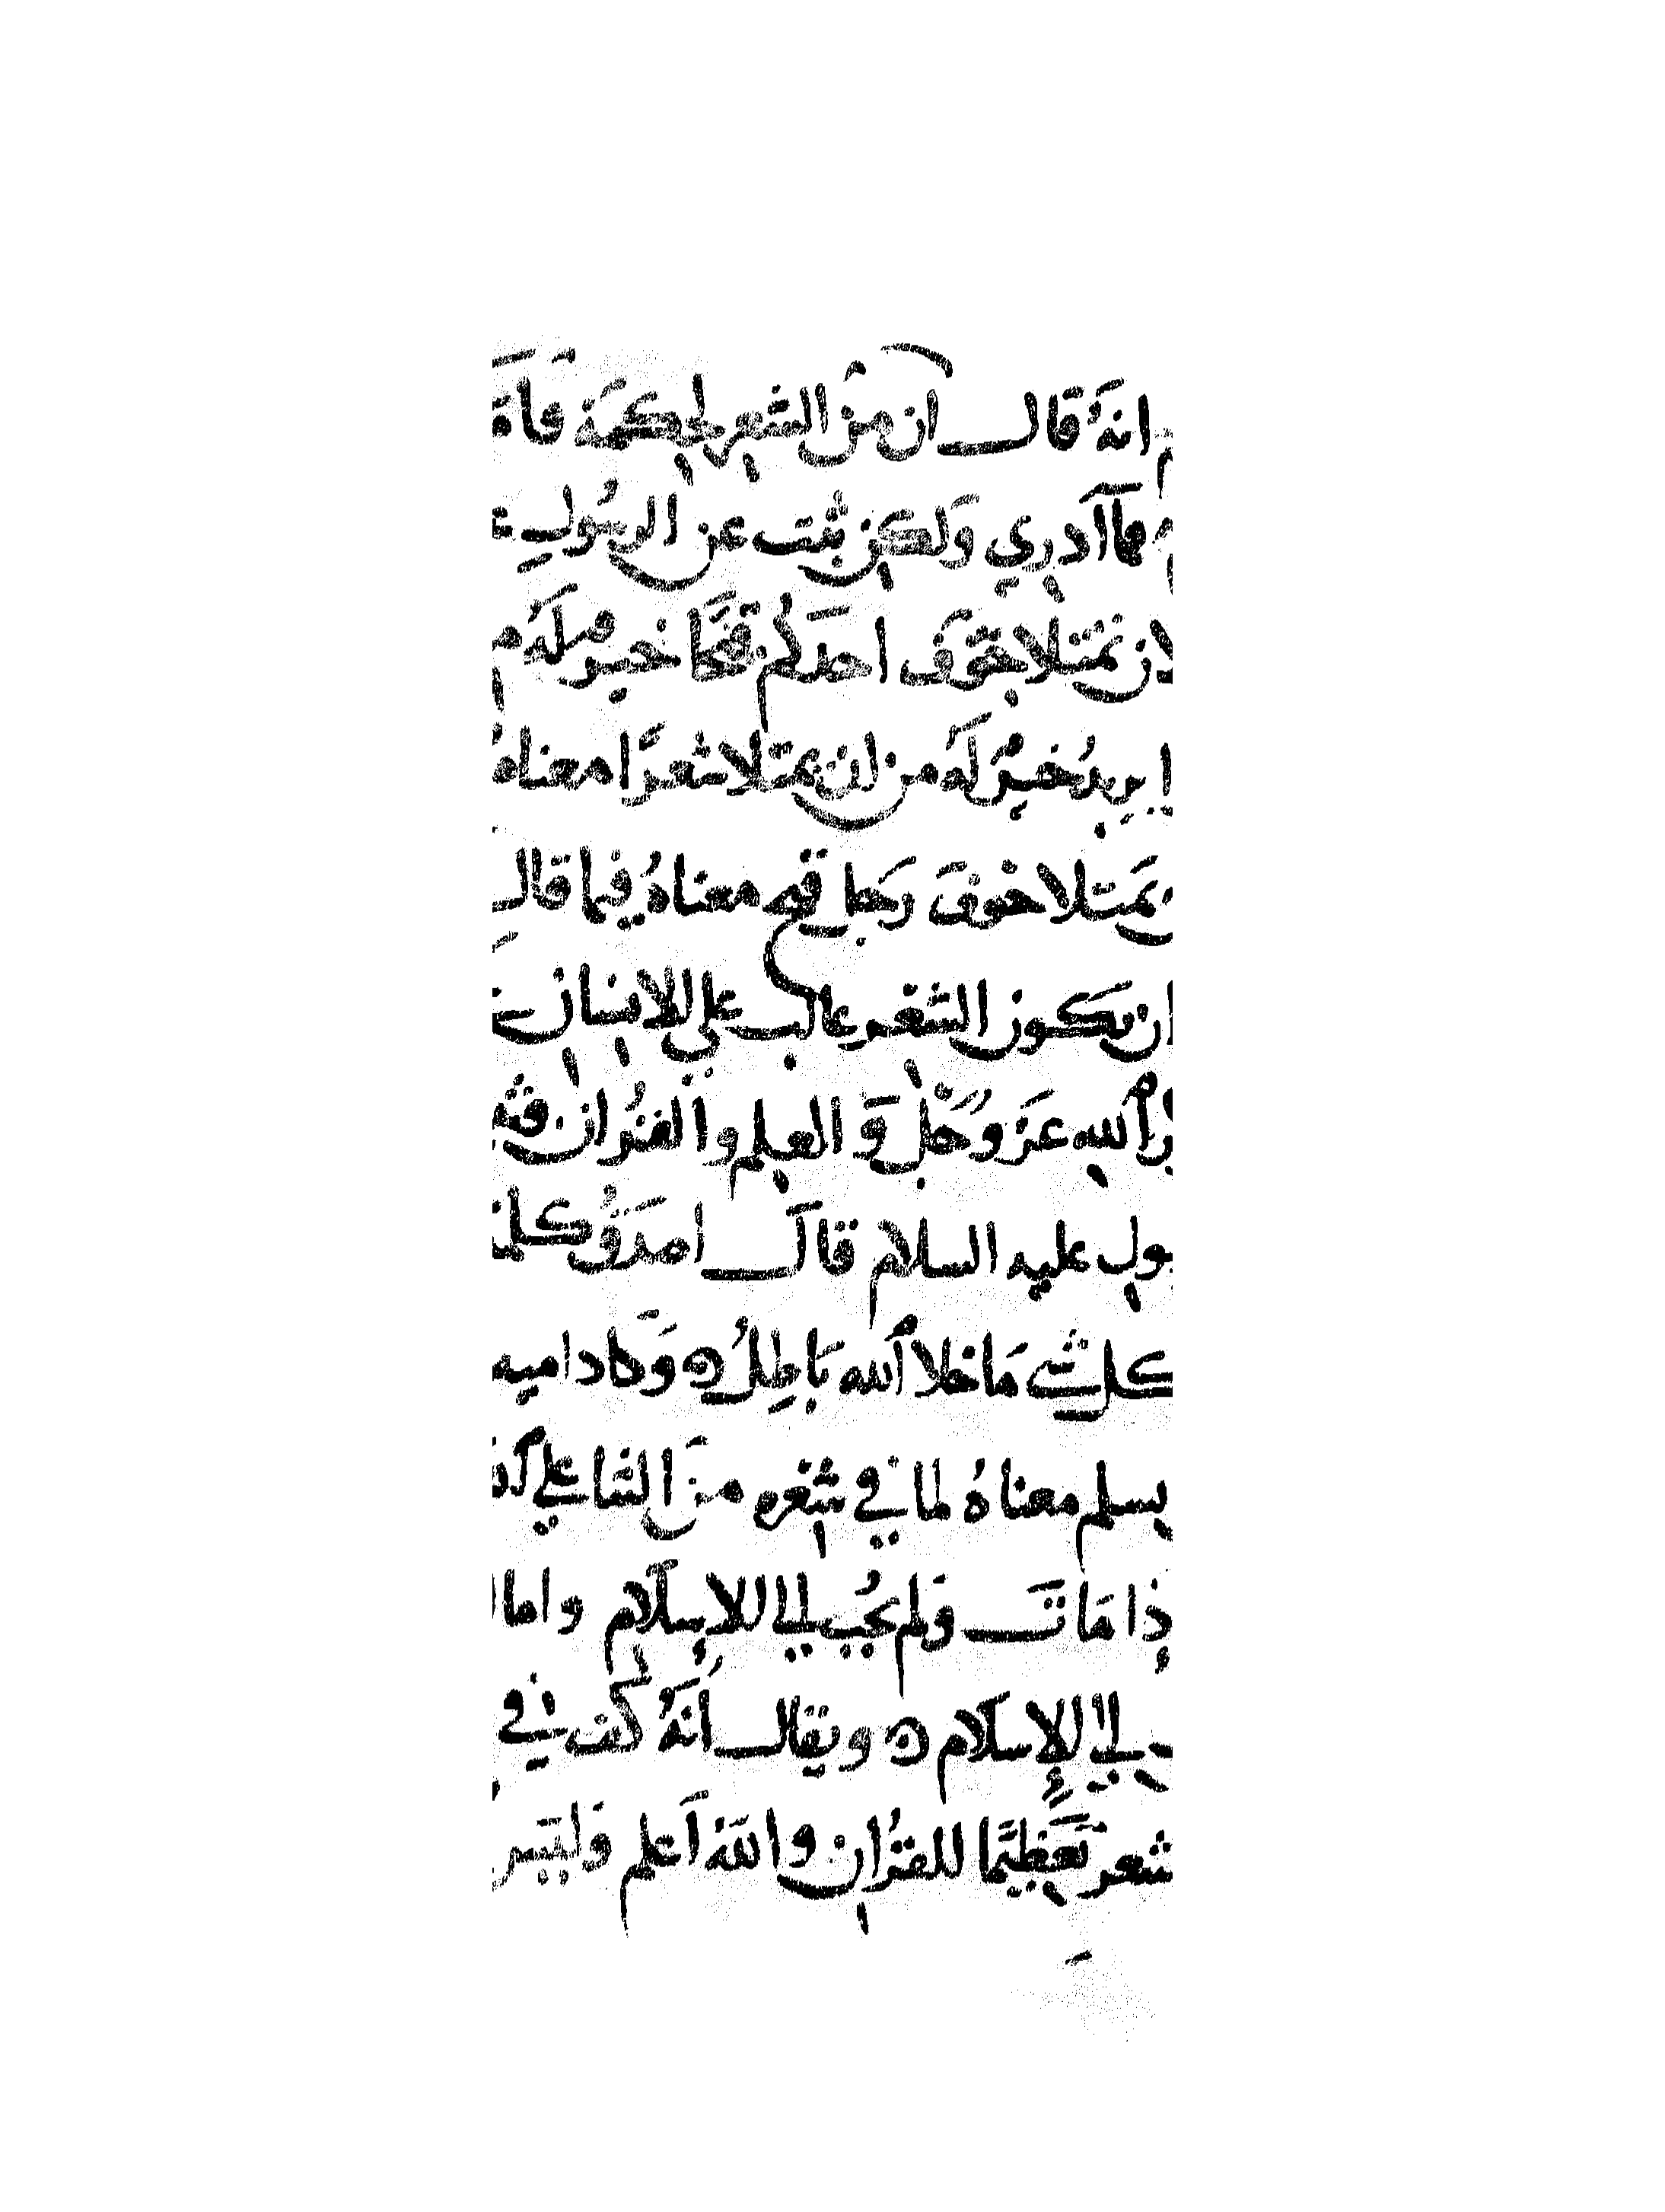 انهُ قال ان من الشعر لحكمة فاة
فما آدري ولكن ثبت عن الرسول
لان تمتلا جوف احدكم قيحًا خير له
يريد خير له من ان يمتلا شعرًا معناهُ
يمتلا خوف رجل قيح معناهُ فيما قال
ان يكون الشعر غالب علي الانسان
الله عز وجل و العلم والقرُان فيه
ول عليه السلام قال اصدق كلمة
كل شي ما خلا الله باطل ه وكاد اميه
يسلم معناهُ لما في شعره من الثنا علي الله
ذا مات ولم يجب الي الاسلام واما
الي الاسلام ه ويقال انهُ كف في
شعر تعظيمًا للقرُان والله اعلم وليس